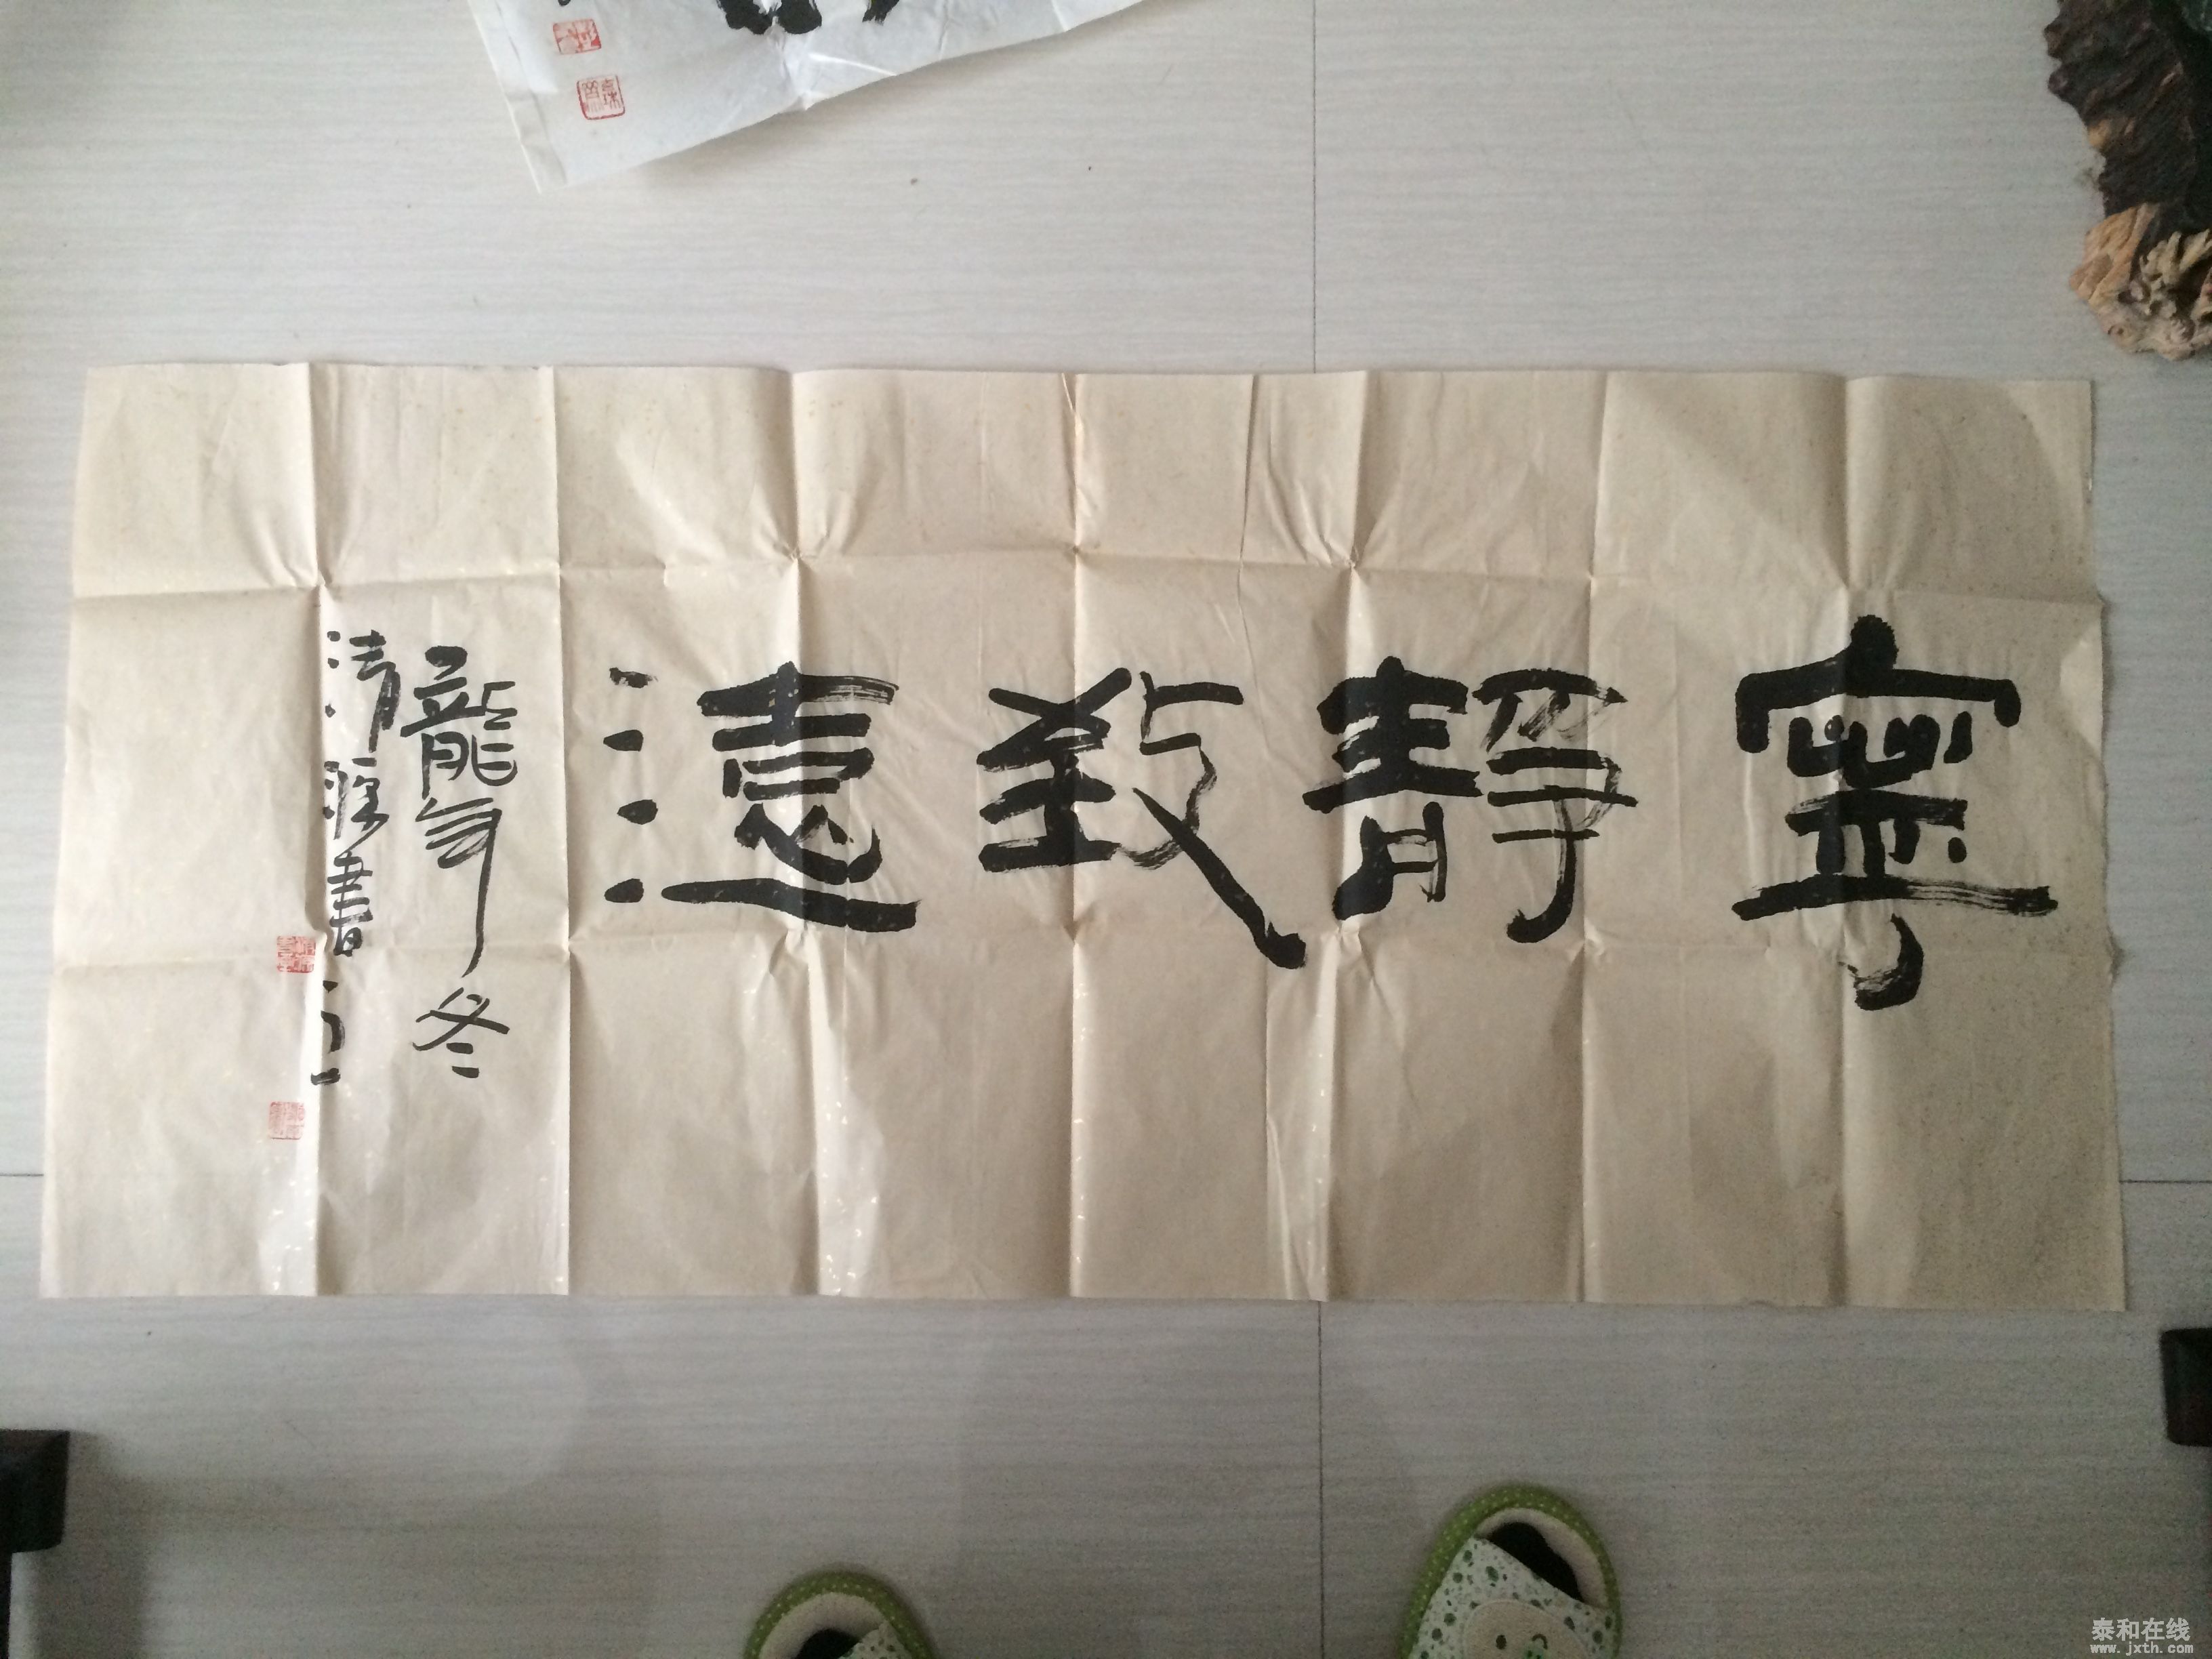 寧靜致遠
龍年冬
清源書
泰和在线
www.jxth.com